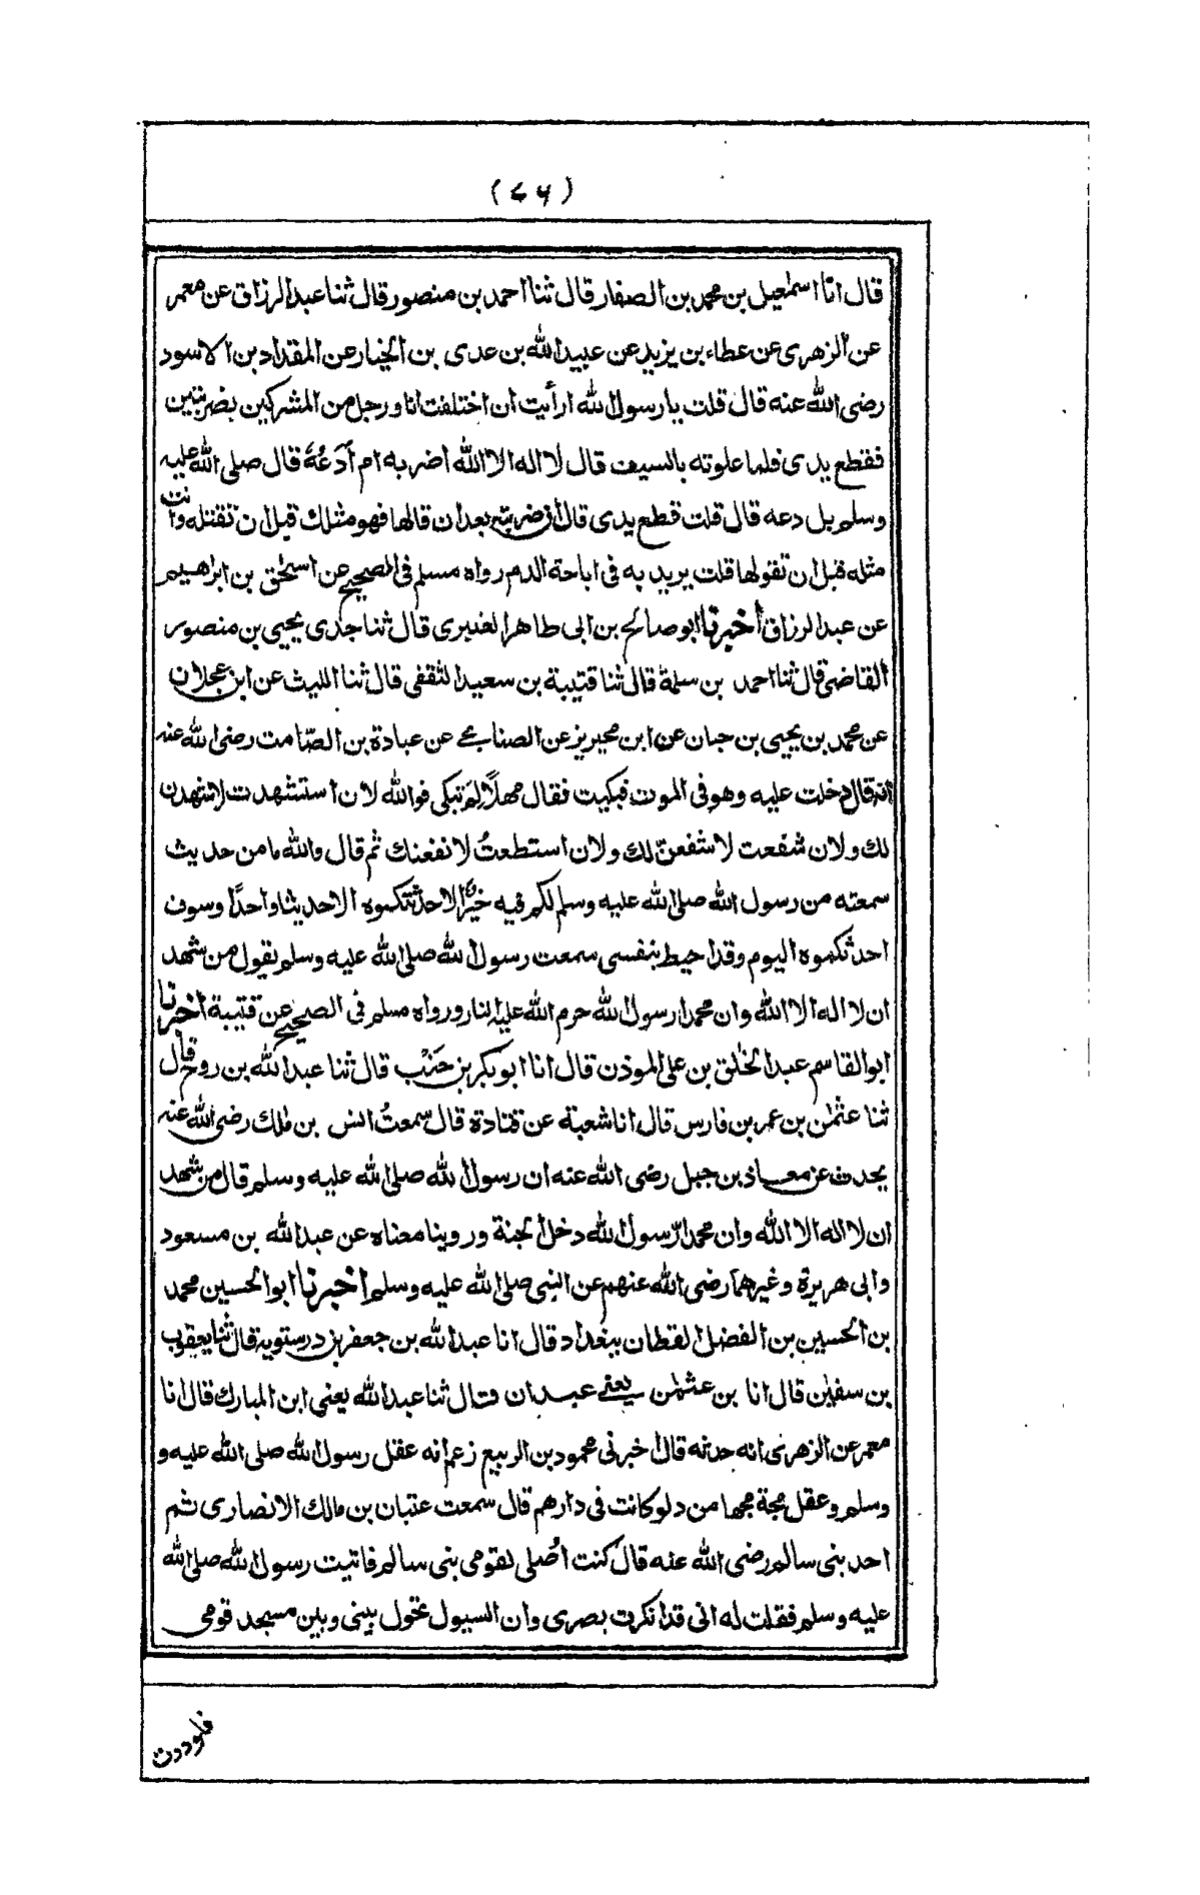 (۷۶)
قال انا اسمٰعیل بن محمد بن الصفار قال ثنا احمد بن منصور قال ثنا عبد الرزاق عن معمر
عن الزهری عن عطاء بن یزید عن عبید الله بن عدی بن الخیار عن المقداد بن الاسود
رضی الله عنه قال قلت یا رسول الله ارأیت ان اختلفت انا و رجل من المشرکین بضربتین
فقطع یدی فلما علوته بالسیف قال لا اله الا الله اضربه ام أدَعُهُ قال صلی الله علیه
وسلم بل دعه قال قلت قطع یدی قال ان ضربته بعد ان قالها فهو مثلك قبل ان تقتله وانت
مثله قبل ان تقولها قلت یرید به فی اباحة الدم رواه مسلم فی الصحیح عن اسحٰق بن ابراهیم
عن عبد الرزاق أخبرنا ابو صالح بن ابی طاهر العنبری قال ثنا جدی یحیی بن منصور
القاضی قال ثنا احمد بن سلمة قال ثنا قتیبة بن سعید الثقفی قال ثنا اللیث عن ابن عجلان
عن محمد بن یحیی بن حبان عن ابن محیریز عن الصنابحی عن عبادة بن الصّامت رضی الله عنه
انه قال دخلت علیه وهو فی الموت فبکیت فقال مهلًا لِمَ تبکی فوالله لان استشهدت لاشهدن
لك ولان شفعت لاشفعنّ لك ولان استطعتُ لانفعنك ثم قال والله ما من حدیث
سمعته من رسول الله صلی الله علیه وسلم لکم فیه خیرٌ الا حدثتکموه الا حدیثا واحدًا وسوف
احدثکموه الیوم وقد احیط بنفسی سمعت رسول الله صلی الله علیه وسلم یقول من شهد
ان لا اله الا الله وان محمدا رسول الله حرم الله علیه النار ورواه مسلم فی الصحیح عن قتیبة اخبرنا
ابو القاسم عبد الخٰلق بن علی الموذن قال انا ابو بکر بن خنب قال ثنا عبد الله بن روح قال
ثنا عثمٰن بن عمر بن فارس قال انا شعبة عن قتادة قال سمعتُ انس بن مٰلك رضی الله عنه
یحدث عن معاذ بن جبل رضی الله عنه ان رسول الله صلی الله علیه وسلم قال من شهد
ان لا اله الا الله وان محمدا رّسول الله دخل الجنة وروینا معناه عن عبد الله بن مسعود
وابی هریرة وغیرهما رضی الله عنهم عن النبی صلی الله علیه وسلم اخبرنا ابو الحسین محمد
بن الحسین بن الفضل القطان ببغداد قال انا عبد الله بن جعفر بن درستویة قال ثنا یعقوب
بن سفیٰن قال انا بن عثمٰن یعنے عبدان قال ثنا عبد الله یعنی ابن المبارك قال انا
معمر عن الزهری انه حدثه قال اخبرنی محمود بن الربیع زعم انه عقل رسول الله صلی الله علیه و
وسلم وعقل مجة مجها من دلو کانت فی دارهم قال سمعت عتبان بن مالك الانصاری ثم
احد بنی سالم رضی الله عنه قال کنت اُصلی لقومی بنی سالم فاتیت رسول الله صلی الله
علیه وسلم فقلت له انی قد انکرت بصری وان السیول تحول بینی وبین مسجد قومی
فلوددت